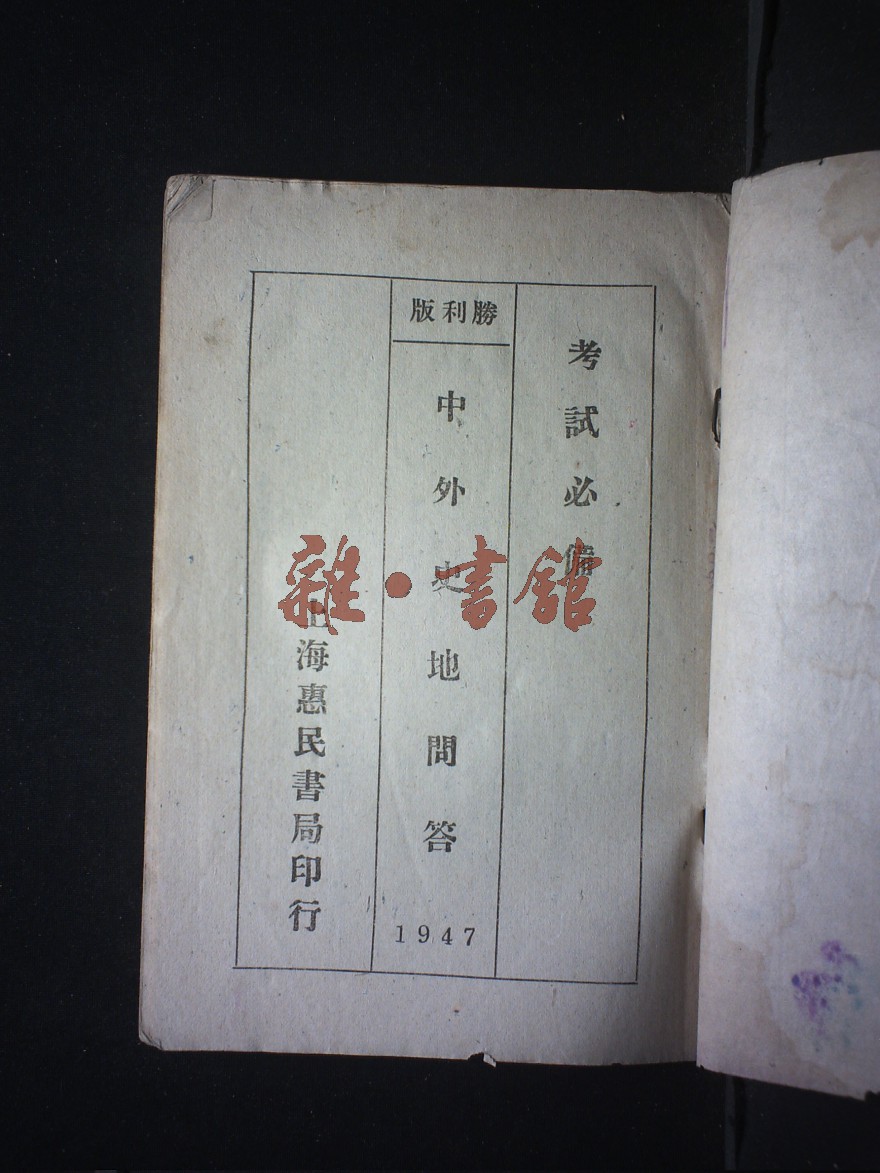 考試必備
勝利版
中外史地問答
1947
上海惠民書局印行
雜·書館